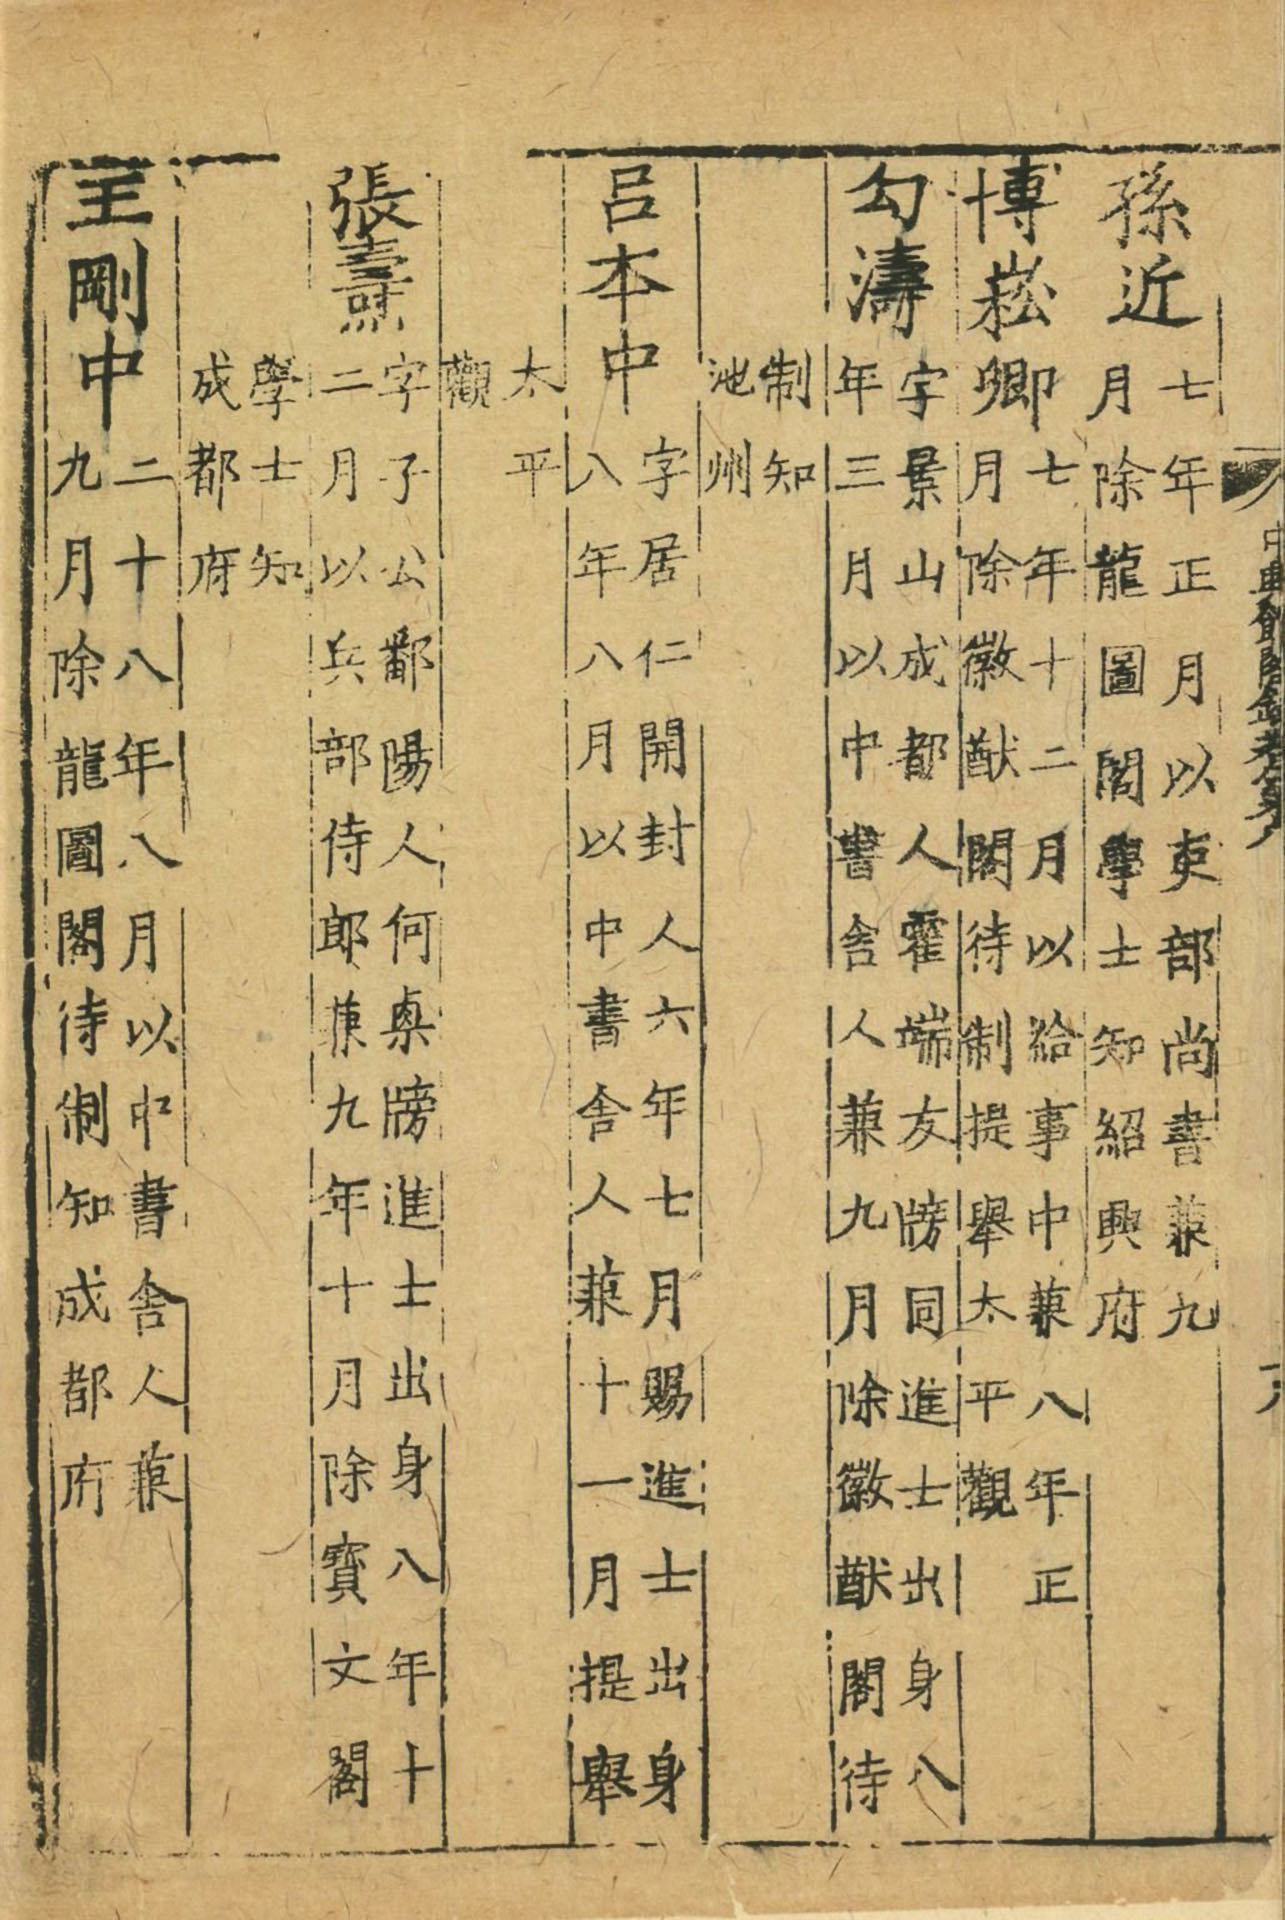 中興館閣錄卷第八
孫近七年正月以吏部尚書兼九
月除龍圖閣學士知紹興府
博崧卿七年十二月以給事中兼八年正
月除徽猷閣待制提舉太平觀
勾濤字景山成都人霍端友牓同進士出身八
年三月以中書舍人兼九月除徽猷閣待
制知
池州
呂本中字居仁開封人六年七月賜進士出身
八年八月以中書舍人兼十一月提舉
太平
觀
張燾字子公鄱陽人何㮚牓進士出身八年十
二月以兵部侍郎兼九年十月除寶文閣
學士知
成都府
王剛中二十八年八月以中書舍人兼
九月除龍圖閣待制知成都府